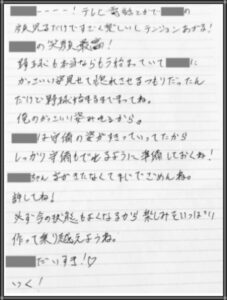 ーーーー！テレビ電話とかで
顔見るだけですごく嬉しいしテンションあがる！
の笑顔最高！
錬もも本当ならもう始まっていて に
かっこいい姿見せて惚れさせるつもりだったん
だけど野球始まるまで待ってね。
俺のかっこいい姿みせるから。
は守備の姿が好きっていってたから
しっかり守備もでれるように準備しておくね！
ちゃん 字がきたなくてまじでごめんね。
許してね！
必ず今の状態もよくなるから楽しみをいっぱい
作って乗り越えようね。
だいすき！♡
いつく！